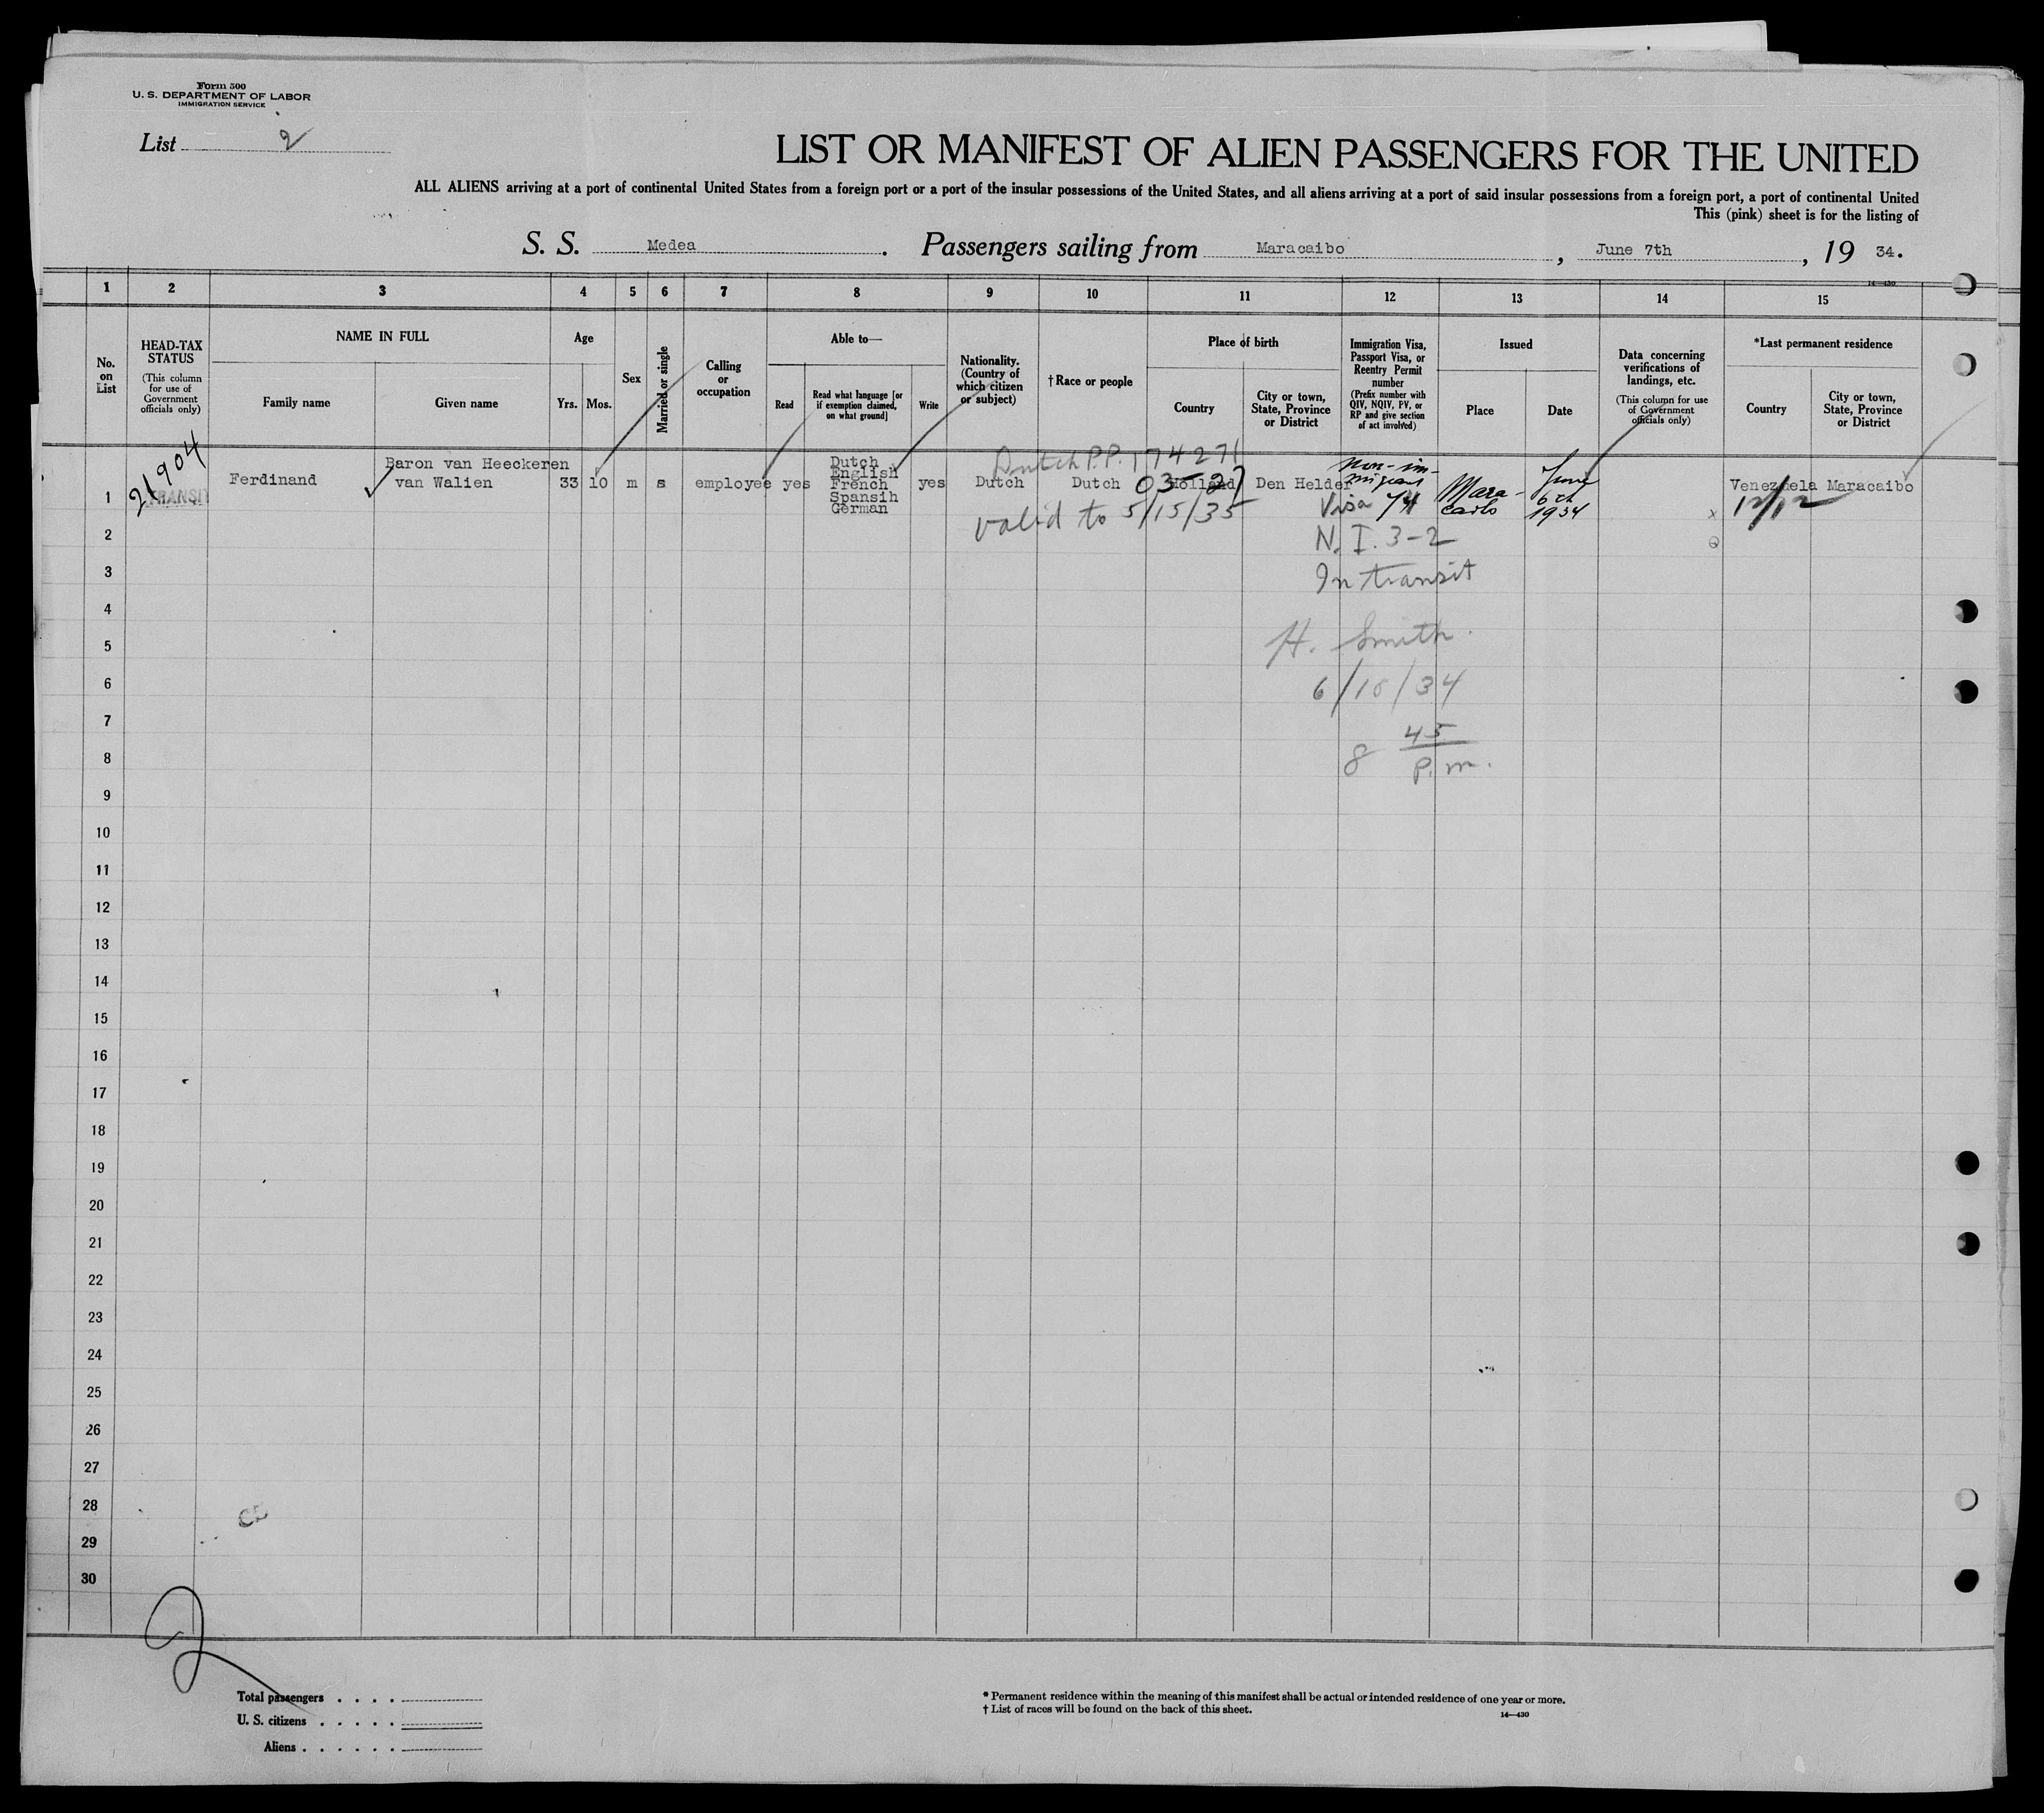 Form 500
U. S. DEPARTMENT OF LABOR
IMMIGRATION SERVICE
List 2
LIST OR MANIFEST OF ALIEN PASSENGERS FOR THE UNITED
ALL ALIENS arriving at a port of continental United States from a foreign port or a port of the insular possessions of the United States, and all aliens arriving at a port of said insular possessions from a foreign port, a port of continental United
This (pink) sheet is for the listing of
S. S. Medea. Passengers sailing from Maracaibo, June 7th, 19 34.
14—430
1 2 3 4 5 6 7 8 9 10 11 12 13 14 15
No. on List
HEAD-TAX STATUS
(This column for use of Government officials only)
NAME IN FULL
Family name
Given name
Age
Yrs.
Mos.
Sex
Married or single
Calling or occupation
Able to—
Read
Read what language [or if exemption claimed, on what ground]
Write
Nationality. (Country of which citizen or subject)
† Race or people
Place of birth
Country
City or town, State, Province or District
Immigration Visa, Passport Visa, or Reentry Permit number
(Prefix number with QIV, NQIV, PV, or RP and give section of act involved)
Issued
Place
Date
Data concerning verifications of landings, etc.
(This column for use of Government officials only)
*Last permanent residence
Country
City or town, State, Province or District
Dutch P.P. 174271
1
21904
TRANSIT
Ferdinand
Baron van Heeckeren
van Walien
33 10 m s employee yes
Dutch
English
French
Spansih
German
yes Dutch Dutch Holland Den Helder
03-27
non-im-
migrant
Visa 74
Mara-
caibo
June
6th
1934
Venezuela Maracaibo
12/12
x
valid to 5/15/35
2
N. I. 3-2
3
In transit
4
5
H. Smith
6
6/10/34
7
8
8 45
P. m.
9
10
11
12
13
14
15
16
17
18
19
20
21
22
23
24
25
26
27
28
29
30
2
Total passengers . . . .
U. S. citizens . . . . .
Aliens . . . . . .
* Permanent residence within the meaning of this manifest shall be actual or intended residence of one year or more.
† List of races will be found on the back of this sheet.
14—430